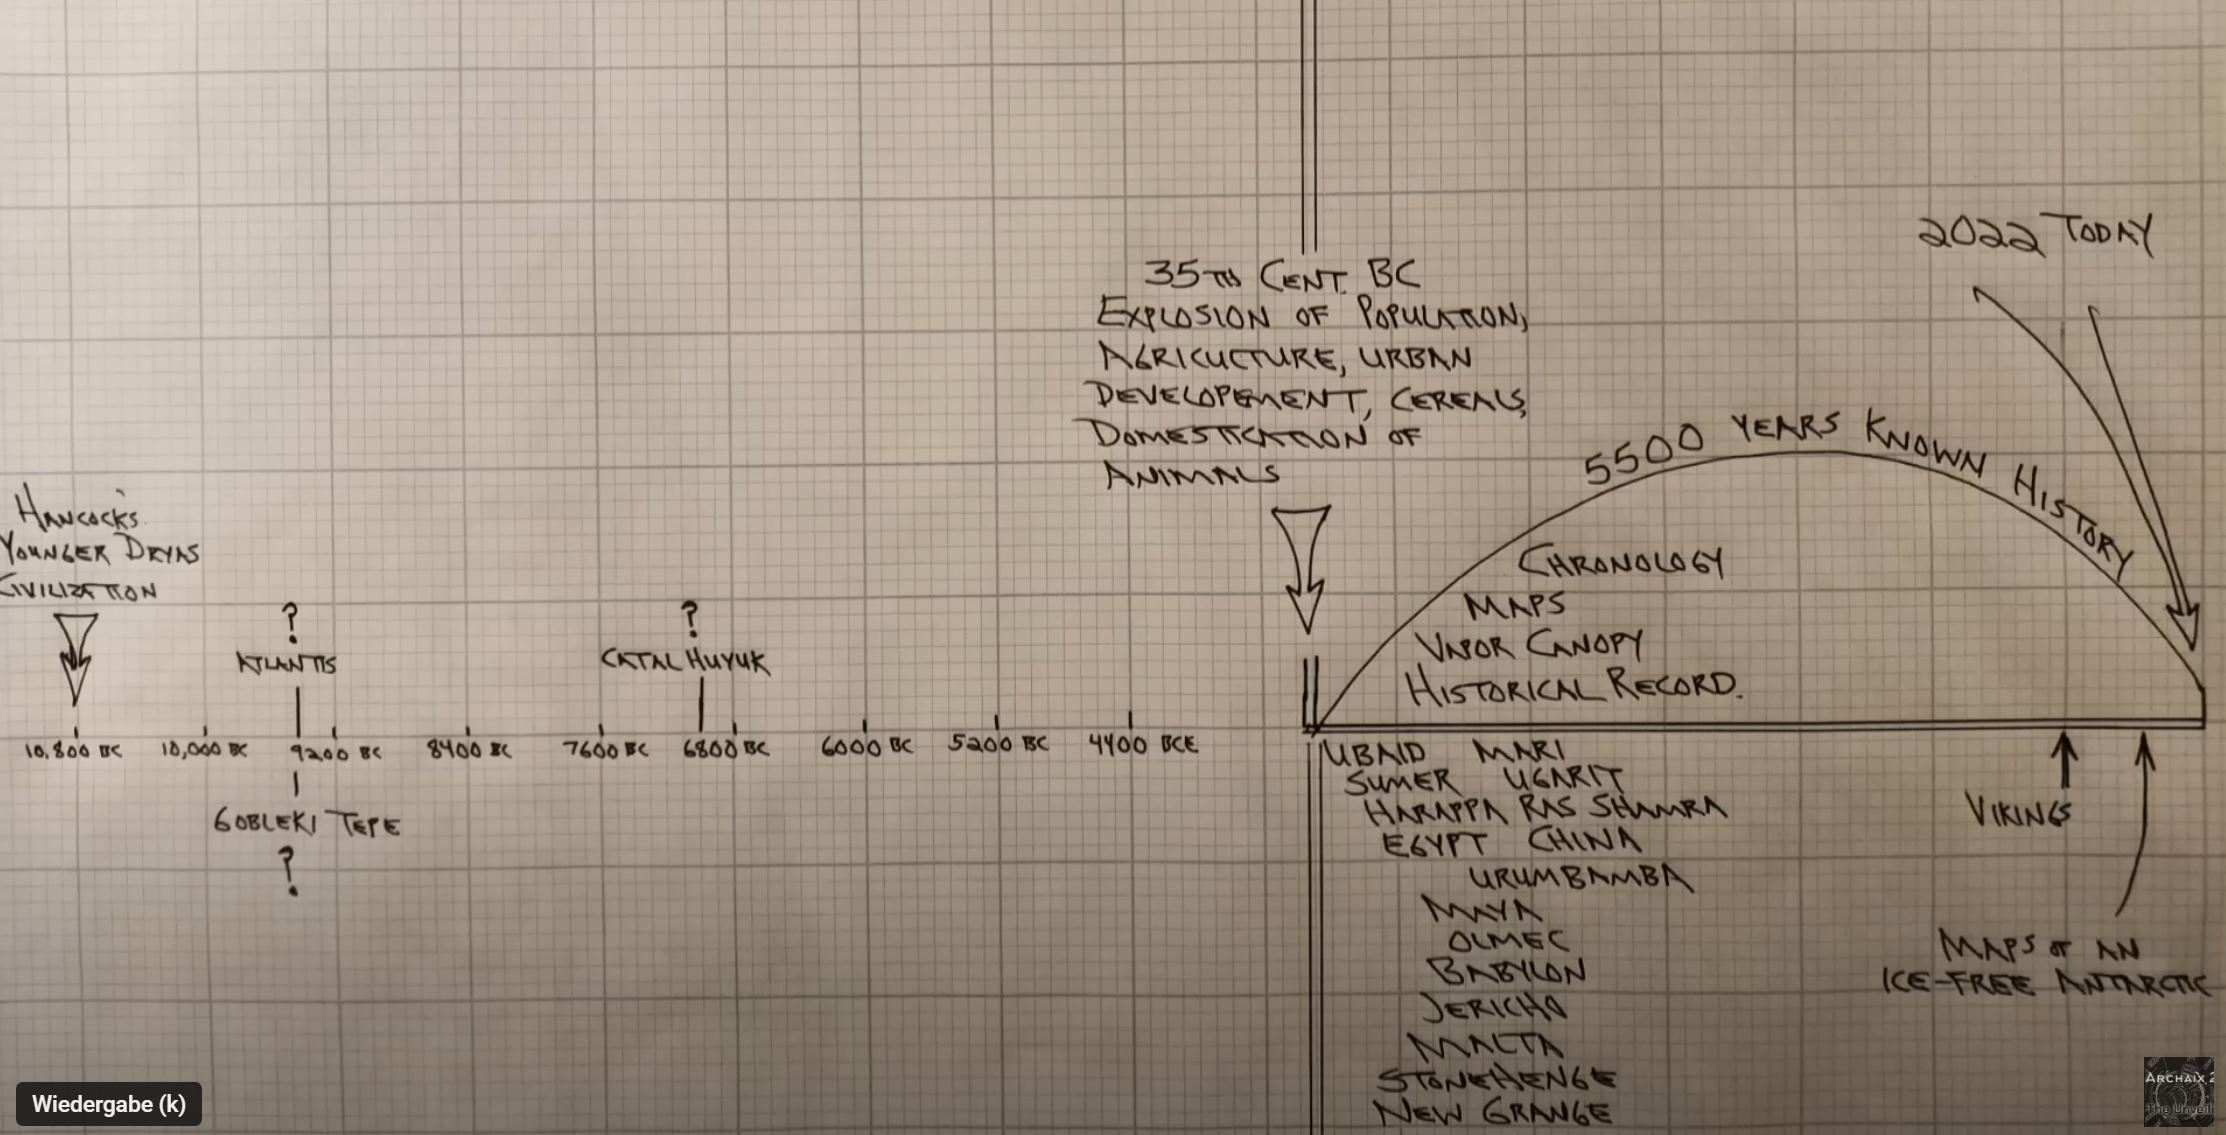 2022 TODAY
35TH CENT. BC
EXPLOSION OF POPULATION,
AGRICULTURE, URBAN
DEVELOPEMENT, CEREALS,
DOMESTICATION OF
ANIMALS
5500 YEARS KNOWN HISTORY
HANCOCK'S
YOUNGER DRYAS
CIVILIZATION
CHRONOLOGY
MAPS
VAPOR CANOPY
HISTORICAL RECORD.
?
ATLANTIS
?
CATAL HUYUK
10,800 BC 10,000 BC 9200 BC 8400 BC 7600 BC 6800 BC 6000 BC 5200 BC 4400 BCE
GOBLEKI TEPE
?
UBAID MARI
SUMER UGARIT
HARAPPA RAS SHAMRA
EGYPT CHINA
URUMBAMBA
MAYA
OLMEC
BABYLON
JERICHO
MALTA
STONEHENGE
NEW GRANGE
VIKINGS
MAPS OF AN
ICE-FREE ANTARCTIC
Wiedergabe (k)
ARCHAIX 2
The Unveil